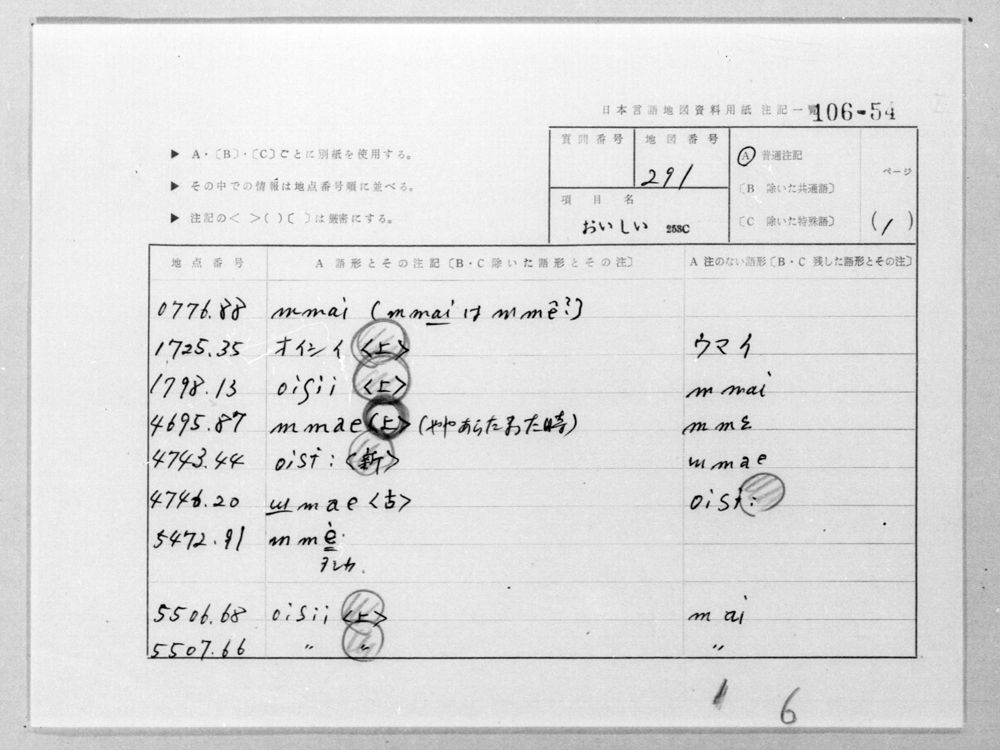 日本言語地図資料用紙 注記一覧 106-54
▶ A・〔B〕・〔C〕ごとに別紙を使用する。
▶ その中での情報は地点番号順に並べる。
▶ 注記の< >( )〔 〕は厳密にする。
質問番号 地図番号 291
項目名 おいしい 258C
A 普通注記
〔B 除いた共通語〕
〔C 除いた特殊語〕
ページ (1)
地点番号 A 語形とその注記〔B・C除いた語形とその注〕 A 注のない語形〔B・C 残した語形とその注〕
0776.88 mmai (mmai は mmẽ?)
1725.35 オイシイ <上> ウマイ
1798.13 oiʃii <上> mmai
4695.87 mmae <上> (ややあらたまった時) mmɛ
4743.44 oisï: <新> ɯmae
4746.20 ɯmae <古> oisï:
5472.91 mmė
5506.68 oiSii <上> mai
5507.66 〃 〃 〃
6